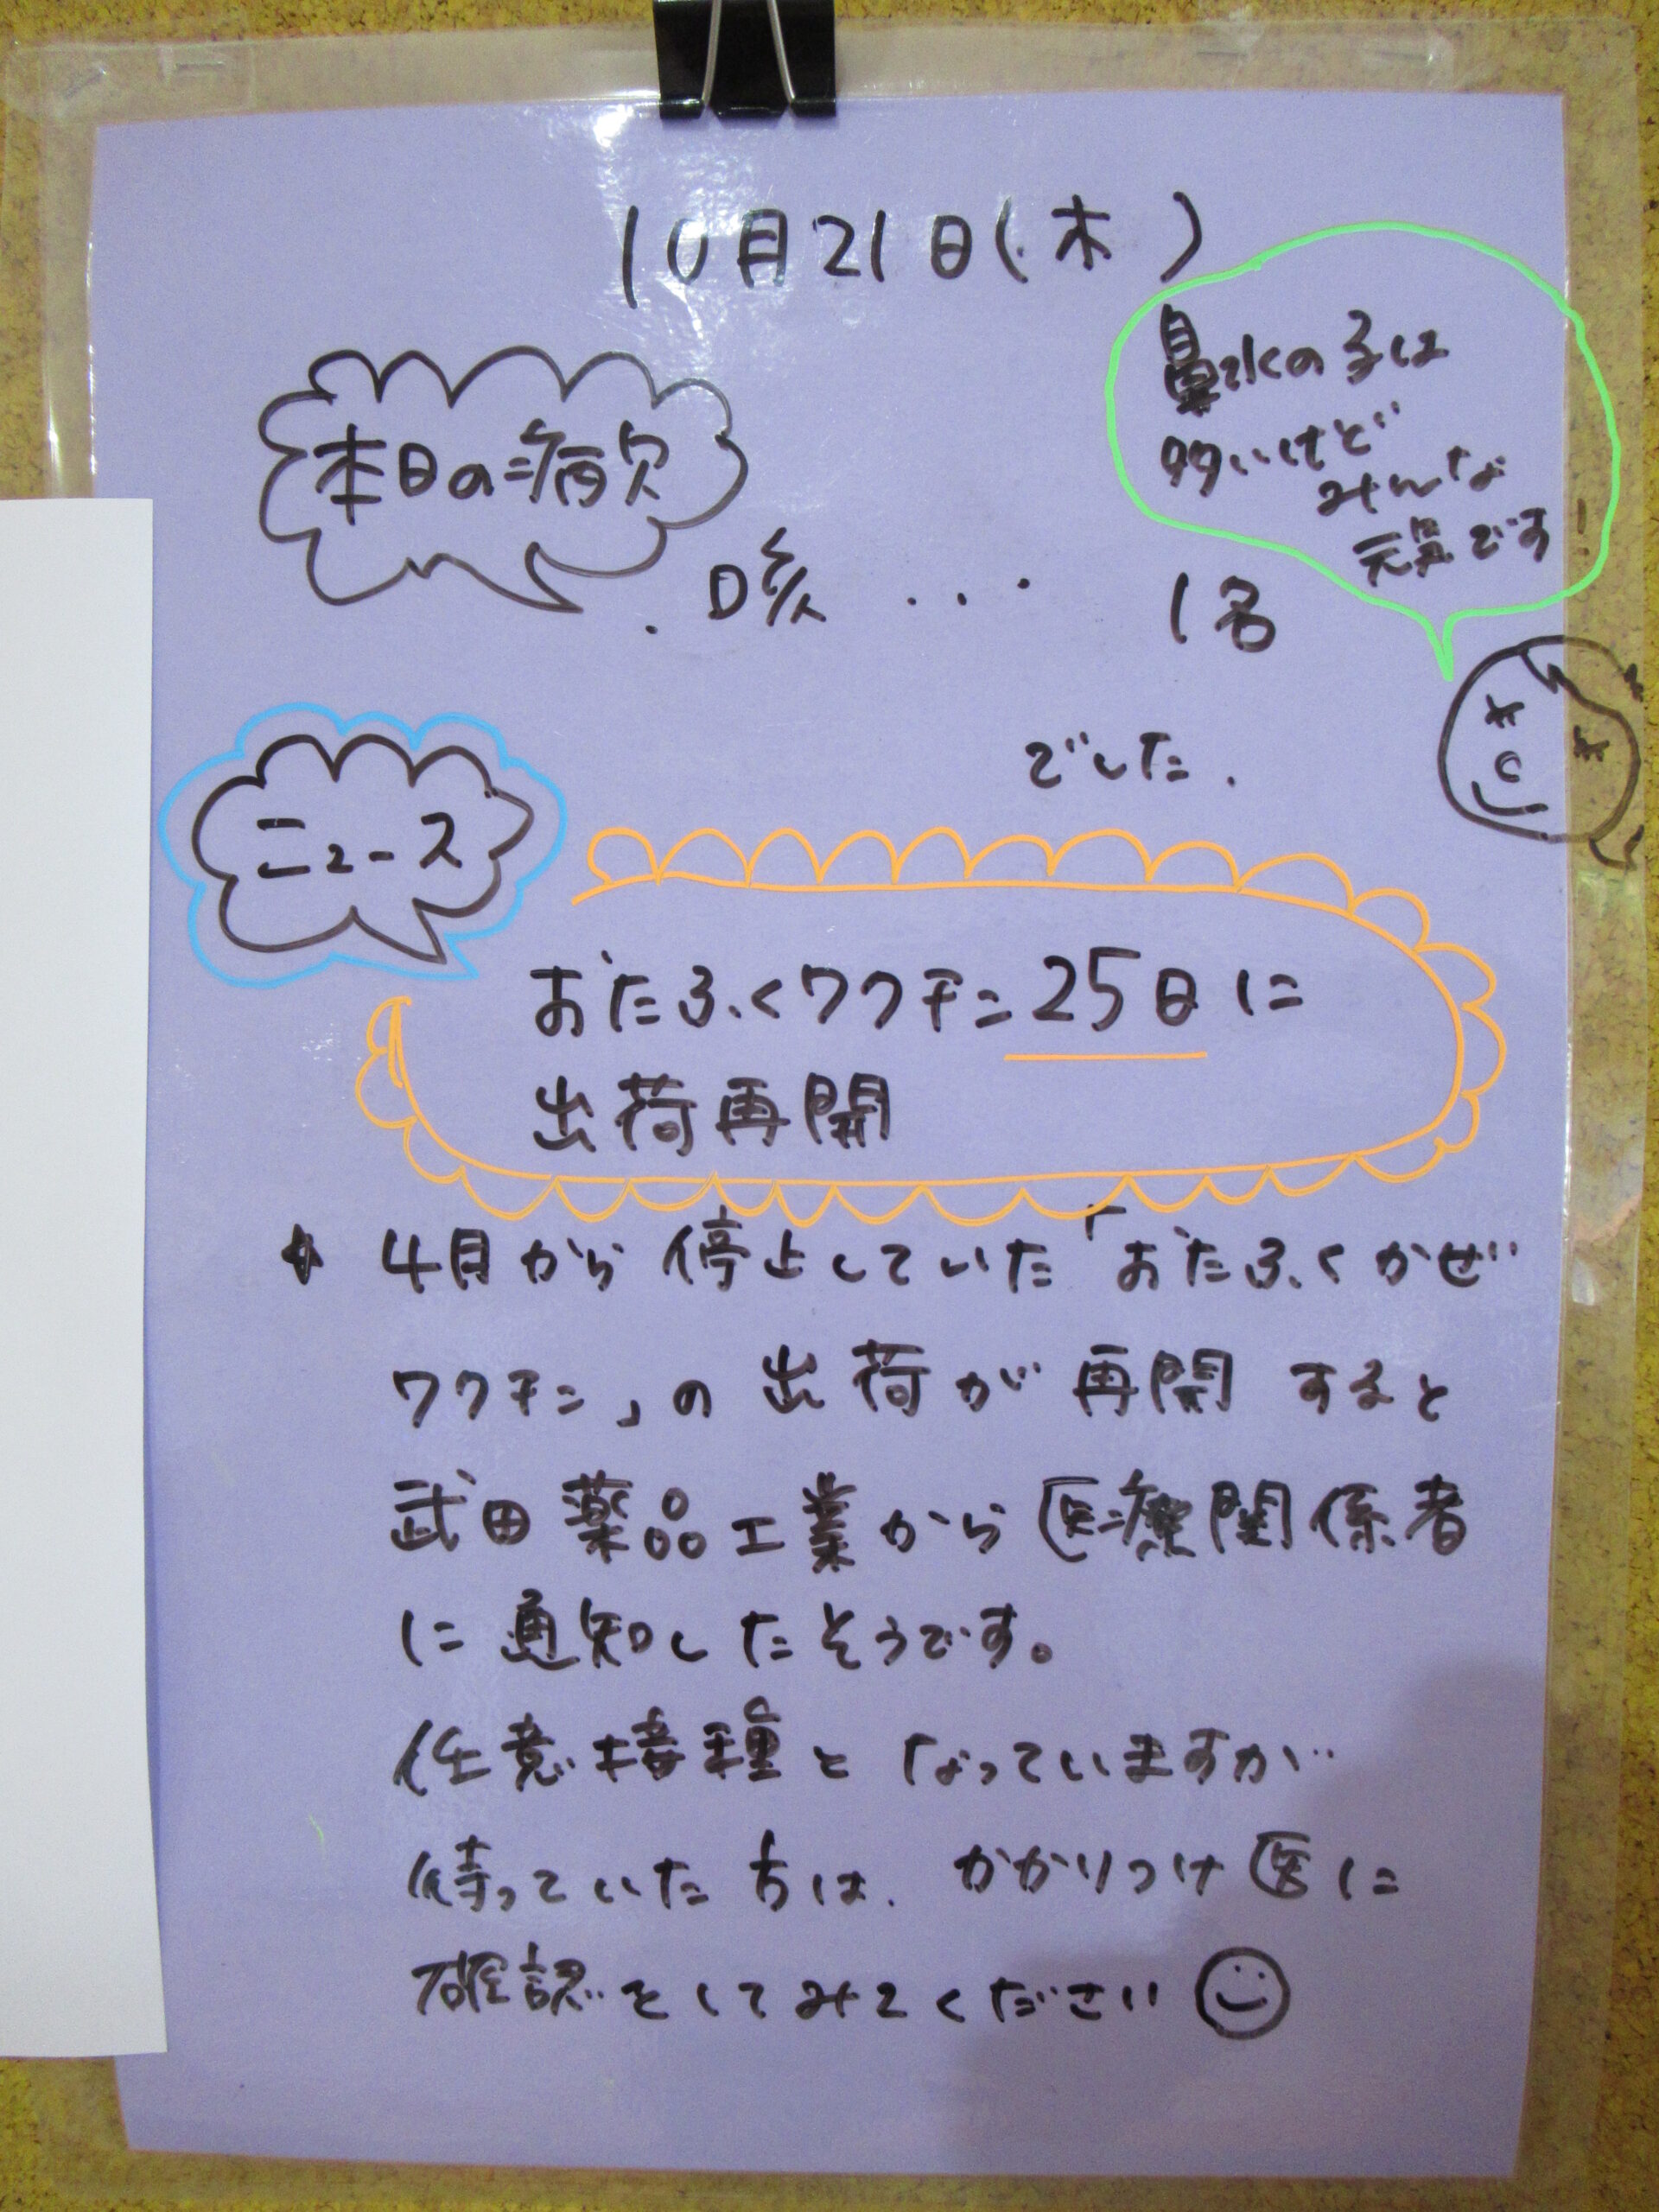 10月21日(木)
鼻水の子は
多いけど
みんな
元気です!
本日の病欠
・咳 ... 1名
でした.
ニュース
おたふくワクチン25日に
出荷再開
4月から停止していた「おたふくかぜ
ワクチン」の出荷が再開すると
武田薬品工業から医療関係者
に通知したそうです。
任意接種となっていますが
待っていた方は、かかりつけ医に
確認をしてみてください